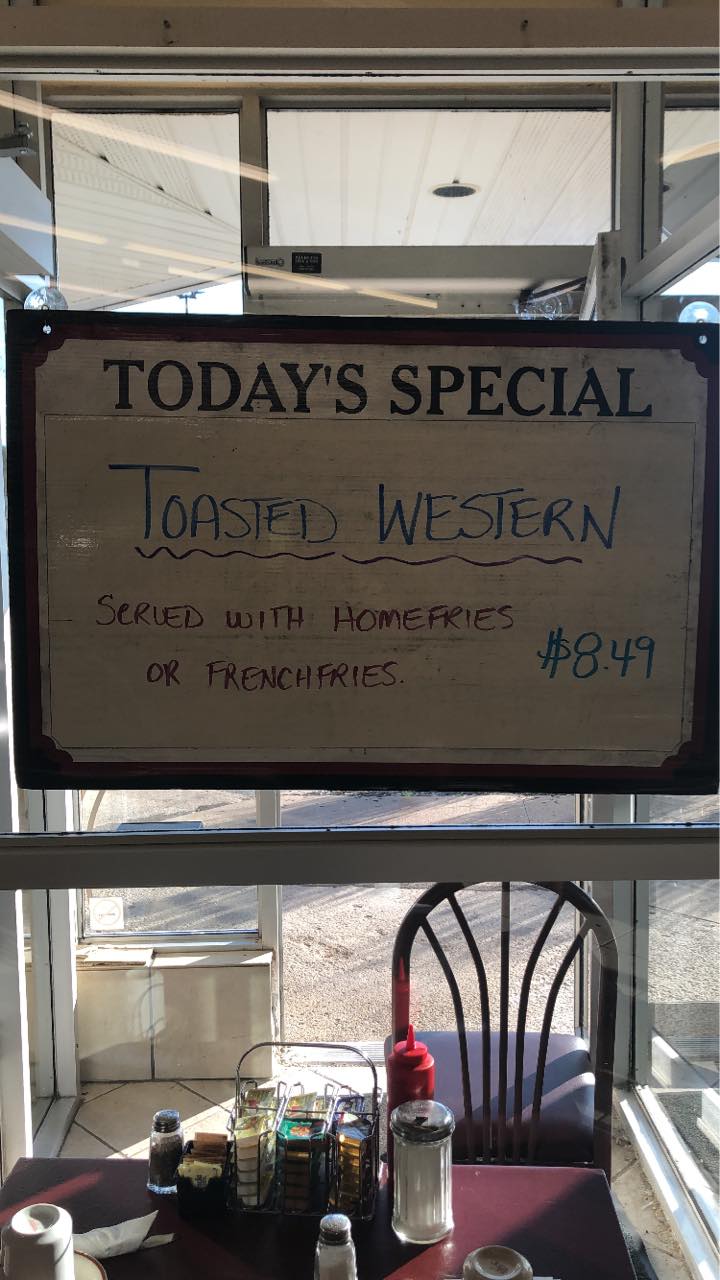 TODAY'S SPECIAL
TOASTED WESTERN
SERVED WITH HOMEFRIES
OR FRENCHFRIES.
$8.49